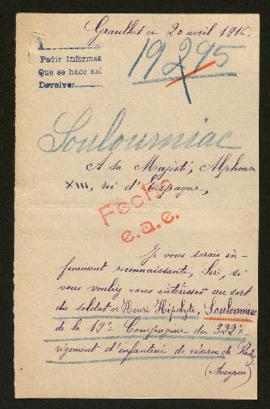 Graulhet le 20 avril 1915.
A
Pedir informes
Que se hace asi
Devolver
19295
Soulourniac
A sa Majesté, Alphonse
XIII, roi d'Espagne,
Fecho
e.a.e.
Je vous serais in-
finement reconnaissante, Seri, si
vous vouliez vous intéresser au sort
du soldat Henri Hipolyte, Soulourniac
de la 19e Compagnie du 322e
régiment d'infanterie de réserve de Rodez
(Aveyron)